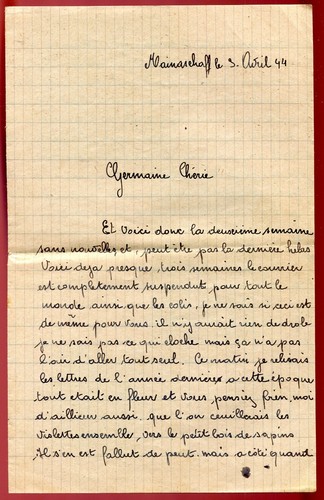 Mainaschaff le 3. Avril 44
Germaine Chérie
Et voici donc la deuxième semaine
sans nouvelles, et, peut être pas la dernière helas
Voici deja presque, trois semaines le courrier
est completement suspendut pour tout le
monde ainsi que les colis, je ne sais si ceci est
de même pour vous, il n'y aurait rien de drole
je ne sais pas ce qui cloche mais ça n'a pas
l'air d'aller tout seul. Ce matin je relisais
les lettres de l'année dernière, a cette époque
tout etait en fleur et vous pensiez bien, moi
d'ailleur aussi, que l'on ceuillerais les
violettes ensemble, vers le petit bois de sapins
Il s'en est fallut de peut. mais a côté quand